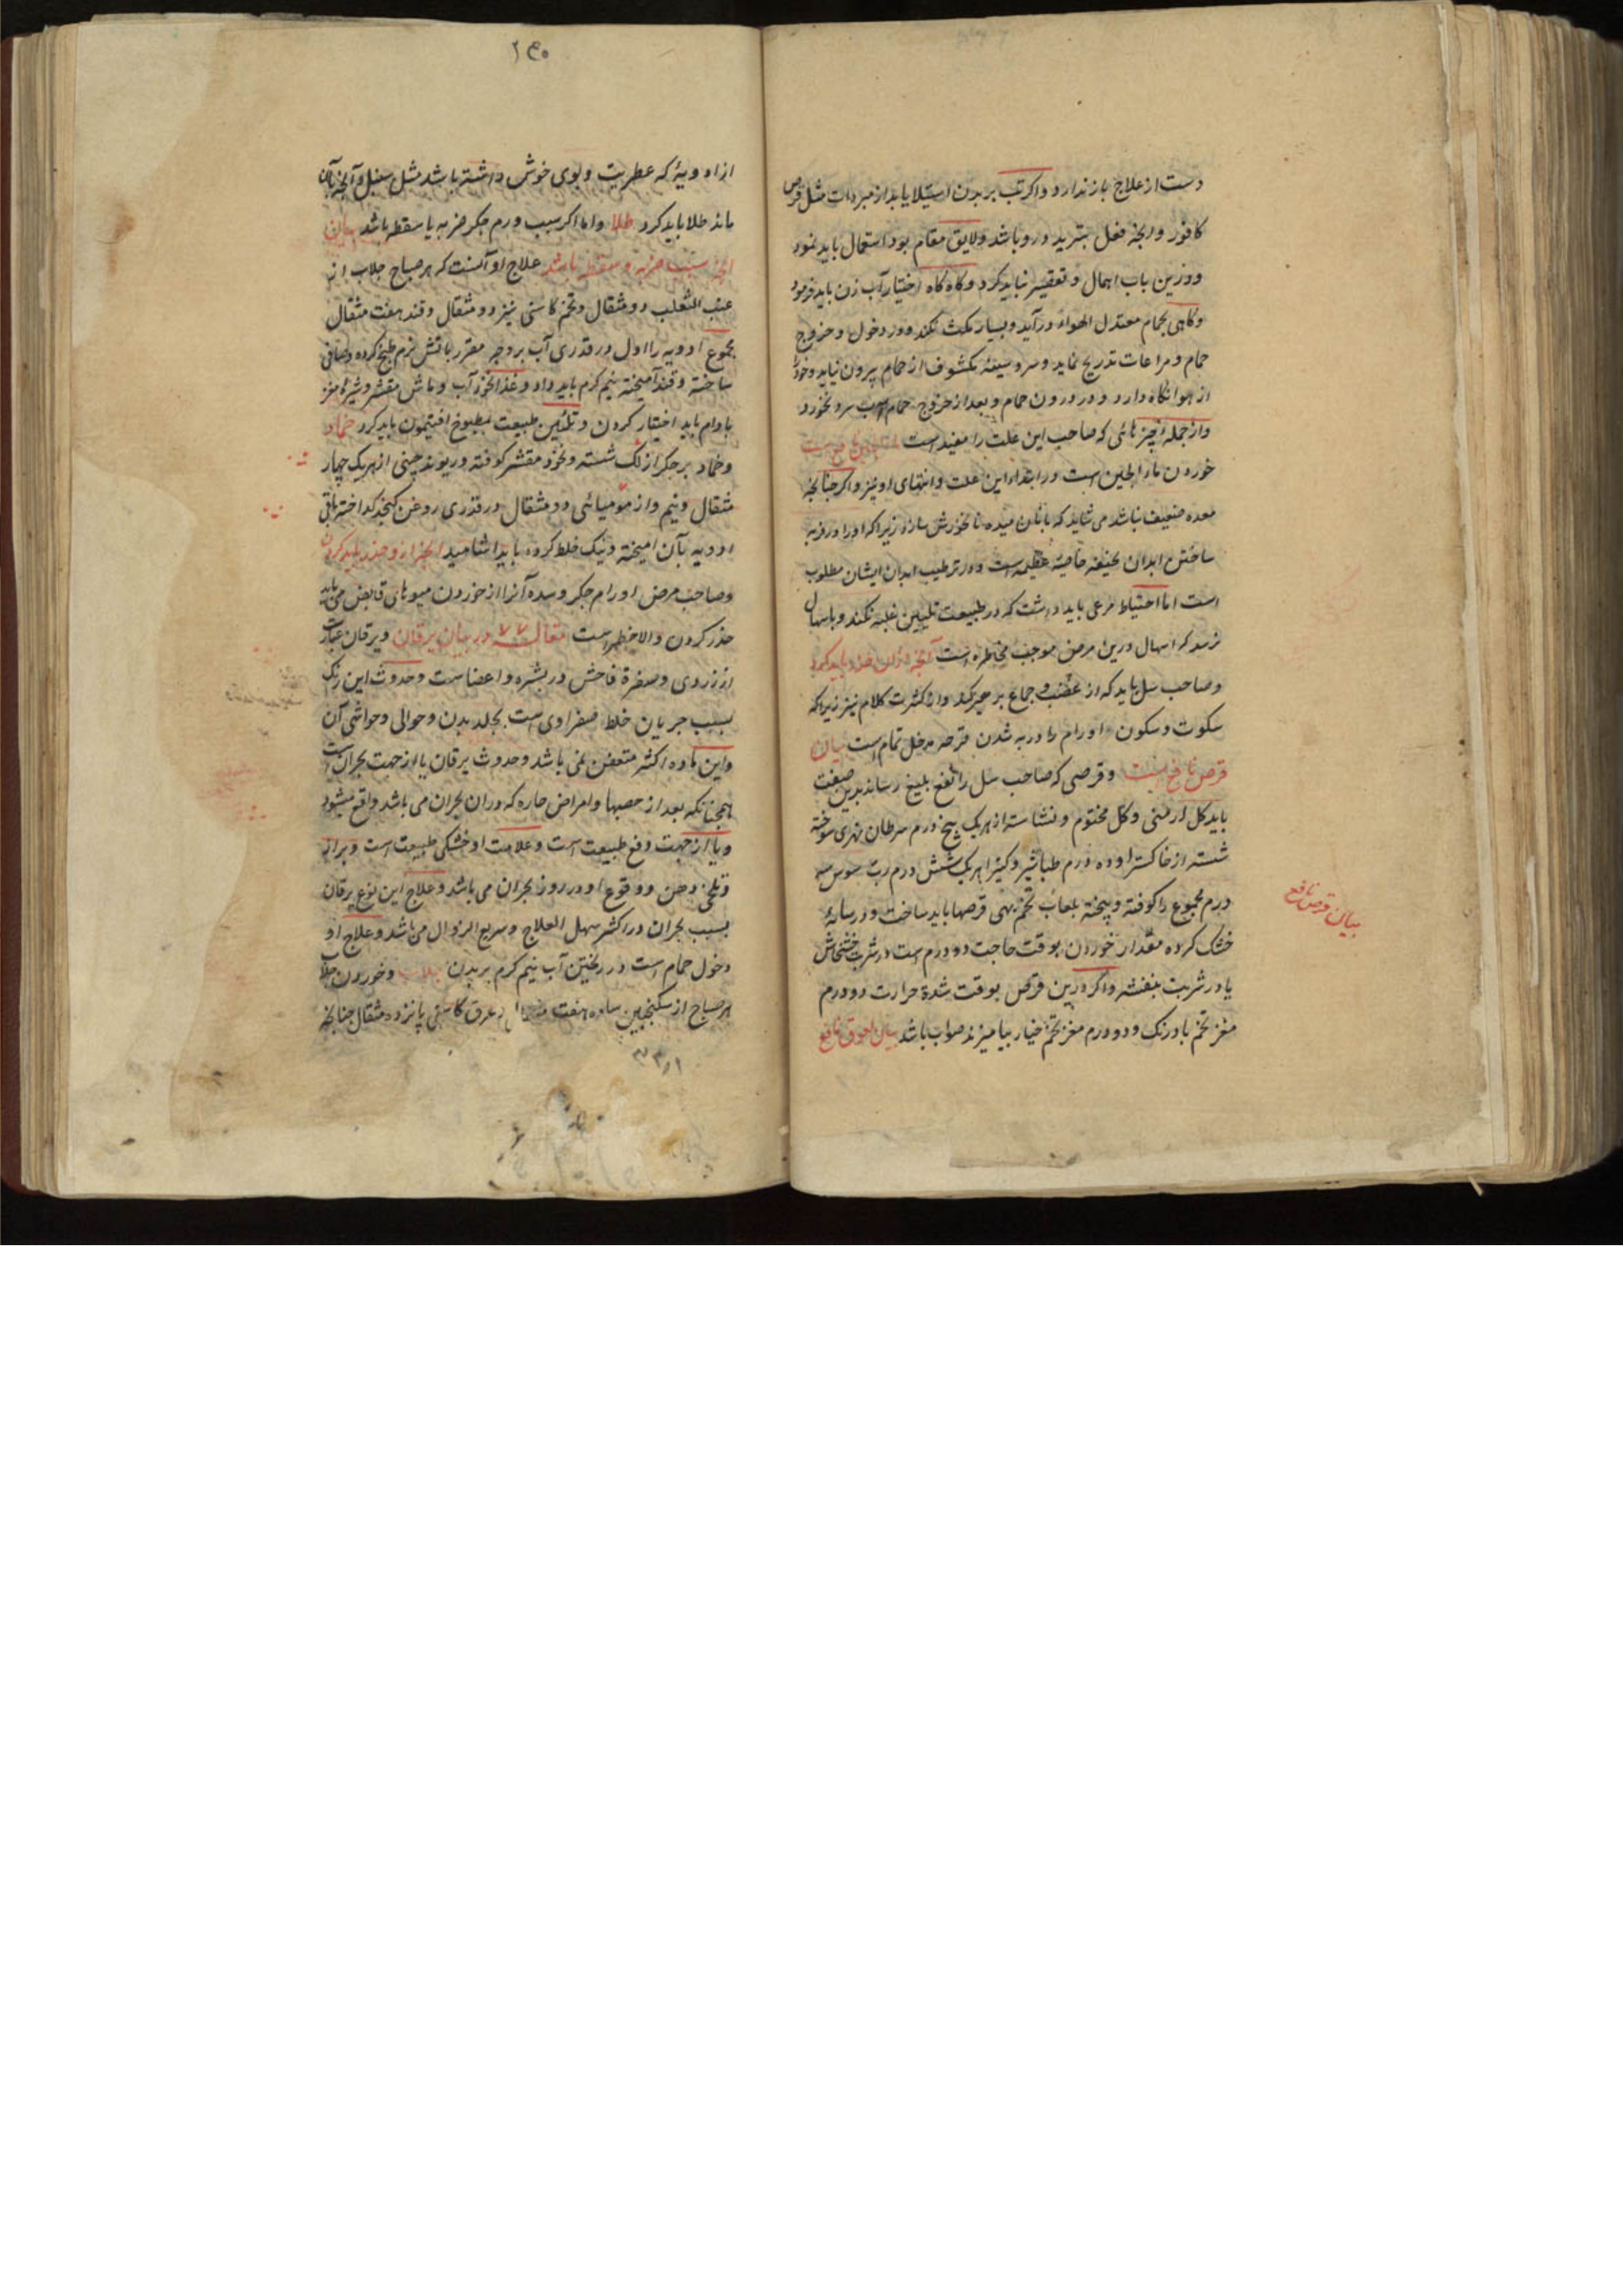 دست از علاج باز ندارد و اکر تب بر بدن استیلا یابد از مبردات مثل قرص
کافور و انجه فعل تبرید درو باشد و لایق مقام بود استعمال باید نمود
و درین باب اهمال و تقصیر نباید کرد و کاه کاه اختیار آب زن باید فرمود
و کاهی بحمام معتدل الهواء درآید و بسیار مکث نکند و در دخول و خروج
حمام و مراعات تدریج نماید و سر و سینه مکشوف از حمام بیرون نیاید و خود را
از هوا نکاه دارد و در درون حمام و بعد از خروج حمام آب سرد نخورد
و از جمله چیزهائی که صاحب این علت را مفید است
خوردن ماء الجبن است در ابتداء این علت و انتهای او نیز و اکر چنانجه
معده ضعیف نباشد می شاید که با نان میده نانخورش سازد زیرا که او را در فربه
ساختن ابدان نحیفه خاصیة عظیمه است و در ترطیب ابدان ایشان مطلوب
است اما احتیاط مرعی باید داشت که در طبیعت تلیین غلبه نکند و باسهال
نرسد که اسهال درین مرض موجب مخاطره است آنجه از آن حذر باید کرد
و صاحب سل باید که از غضب و جماع بر حذر بود و از کثرت کلام نیز زیرا که
سکوت و سکون اورام را در به شدن قرحه مدخل تمام است بیان
قرص نافع است و قرصی که صاحب سل را نفع بلیغ رساند بدین صفت
باید کل ارمنی و کل مختوم و نشاسته از هر یک پنج درم سرطان نهری سوخته
شسته از خاکستر او ده درم طباشیر و کتیرا هر یک شش درم رب سوس سه
درم مجموع را کوفته و بیخته بلعاب تخم بهی قرصها باید ساخت و در سایهٔ
خشک کرده مقدار خوردن بوقت حاجت دو درم است در شربت خشخاش
یا در شربت بنفشه و اکر درین قرص بوقت شدة حرارت دو درم
مغز تخم بادرنک و دو درم مغز تخم خیار بیامیزند صواب باشد بیان لعوق نافع
بیان قرص نافع
۲۴۰
از ادویهٔ که عطریت و بوی خوش داشته باشد مثل سنبل و آنجه بآن
ماند طلا باید کرد طلا و اما اکر سبب ورم جکر ضربه یا سقطه باشد بیان
انجه بسبب ضربه و سقطه باشد علاج او آنست که هر صباح جلاب از
عنب الثعلب دو مثقال و تخم کاسنی نیز دو مثقال و قند هفت مثقال
مجموع ادویه را اول در قدری آب بر وجه مقرر باتش نرم طبخ کرده و صافی
ساخته و قند آمیخته نیم کرم باید داد و غذا نخود آب و ماش مقشر و شیره مغز
بادام باید اختیار کردن و تلیین طبیعت بمطبوخ افتیمون باید کرد ضماد
و ضماد بر جکر از لک شسته و نخود مقشر کوفته و ریوند چینی از هر یک چهار
مثقال و نیم و از مومیائی دو مثقال در قدری روغن کنجد کداخته باقی
ادویه بآن امیخته و نیک خلط کرده باید اشامید انجه از و حذر باید کردن
و صاحب مرض اورام جکر و سده آنرا از خوردن میوهای قابض می باید
حذر کردن و الا خطر است مقاله ۷۷ در بیان یرقان و یرقان عبارت
از زردی و صفرة فاحش در بشره و اعضاست و حدوث این رنک
بسبب جریان خلط صفراوی است بجلد بدن و حوالی و حواشی آن
و این ماده اکثر متعفن نمی باشد و حدوث یرقان یا از جهت بحران است
همچنانکه بعد از حصبها و امراض حاره که دران بحران می باشد واقع میشود
و یا از جهت دفع طبیعت است و علامت او خشکی طبیعت است و براز
و تلخی دهن و وقوع او در روز بحران می باشد و علاج این نوع یرقان
بسبب بحران در اکثر سهل العلاج و سریع الزوال می باشد و علاج او
دخول حمام است و ریختن آب نیم کرم بر بدن جلاب و خوردن جلاب
هر صباح از سکنجبین ساده هفت مثقال و عرق کاسنی پانزده مثقال چنانجه